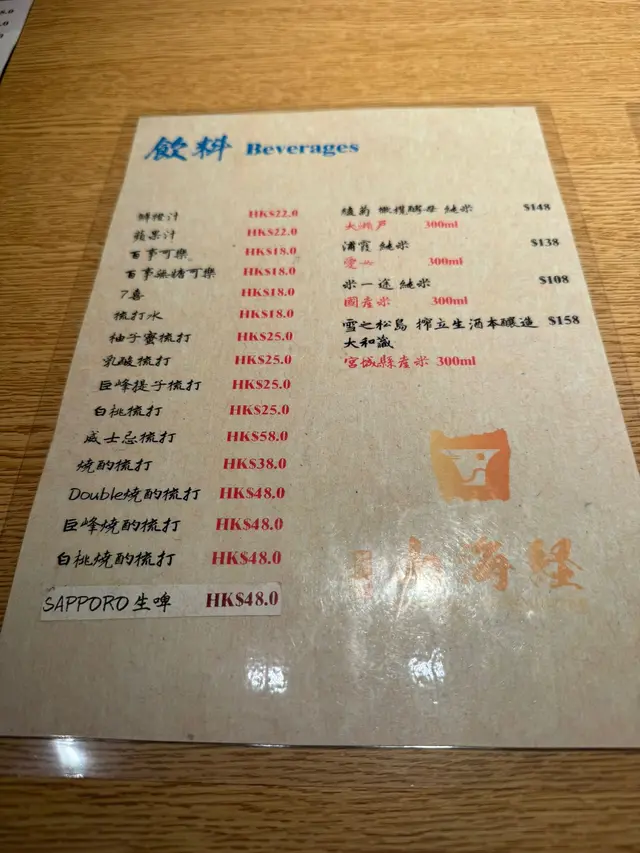 飲料 Beverages
鮮橙汁 HK$22.0
蘋果汁 HK$22.0
百事可樂 HK$18.0
百事無糖可樂 HK$18.0
7喜 HK$18.0
梳打水 HK$18.0
柚子蜜梳打 HK$25.0
乳酸梳打 HK$25.0
巨峰提子梳打 HK$25.0
白桃梳打 HK$25.0
威士忌梳打 HK$58.0
燒酌梳打 HK$38.0
Double燒酌梳打 HK$48.0
巨峰燒酌梳打 HK$48.0
白桃燒酌梳打 HK$48.0
SAPPORO生啤 HK$48.0
綾菊 橄欖酵母 純米 $148
大瀨戶 300ml
浦霞 純米 $138
愛心 300ml
米一途 純米 $108
國產米 300ml
雪之松島 搾立生酒本釀造 $158
大和藏
宮城縣産米 300ml
山海経